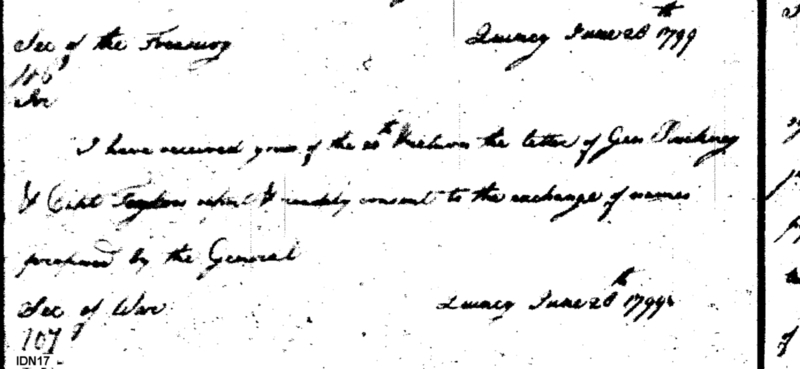 Sec of the Treasury Quincy June 28th 1799
106
Sir
I have received yours of the 20th & return the letter of Gen Pinckney
& Capt Taylors report & readily consent to the exchange of names
proposed by the General
Sec of War Quincy June 28th 1799
107
IDN17